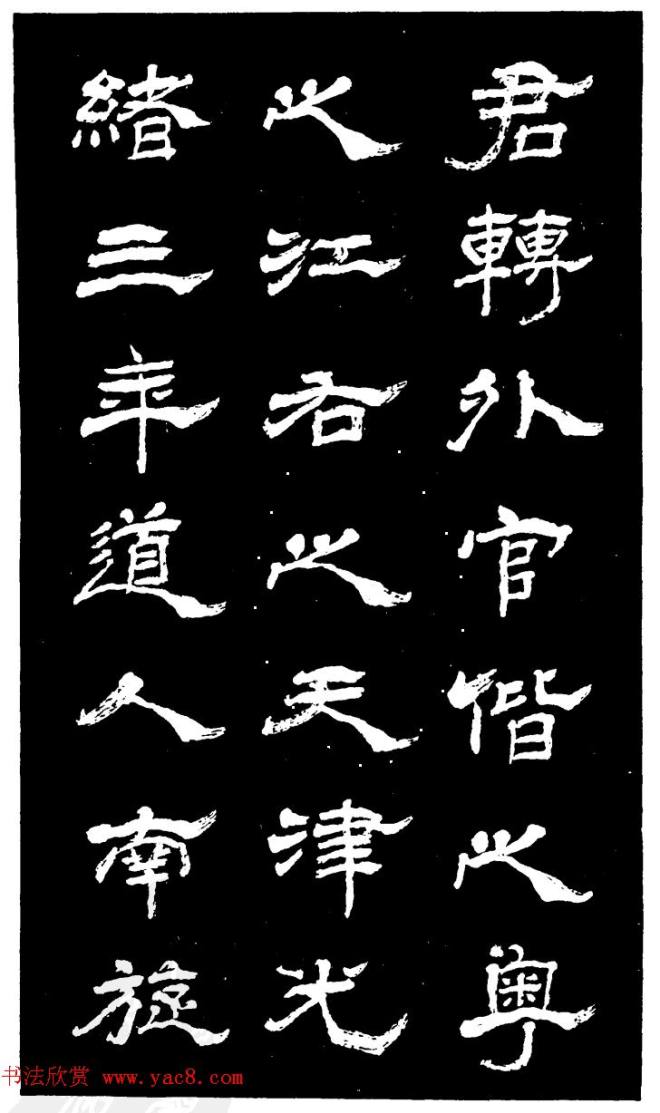 君轉外官偕之粤
之江右之天津光
緒三年道人南旋
书法欣赏 www.yac8.com